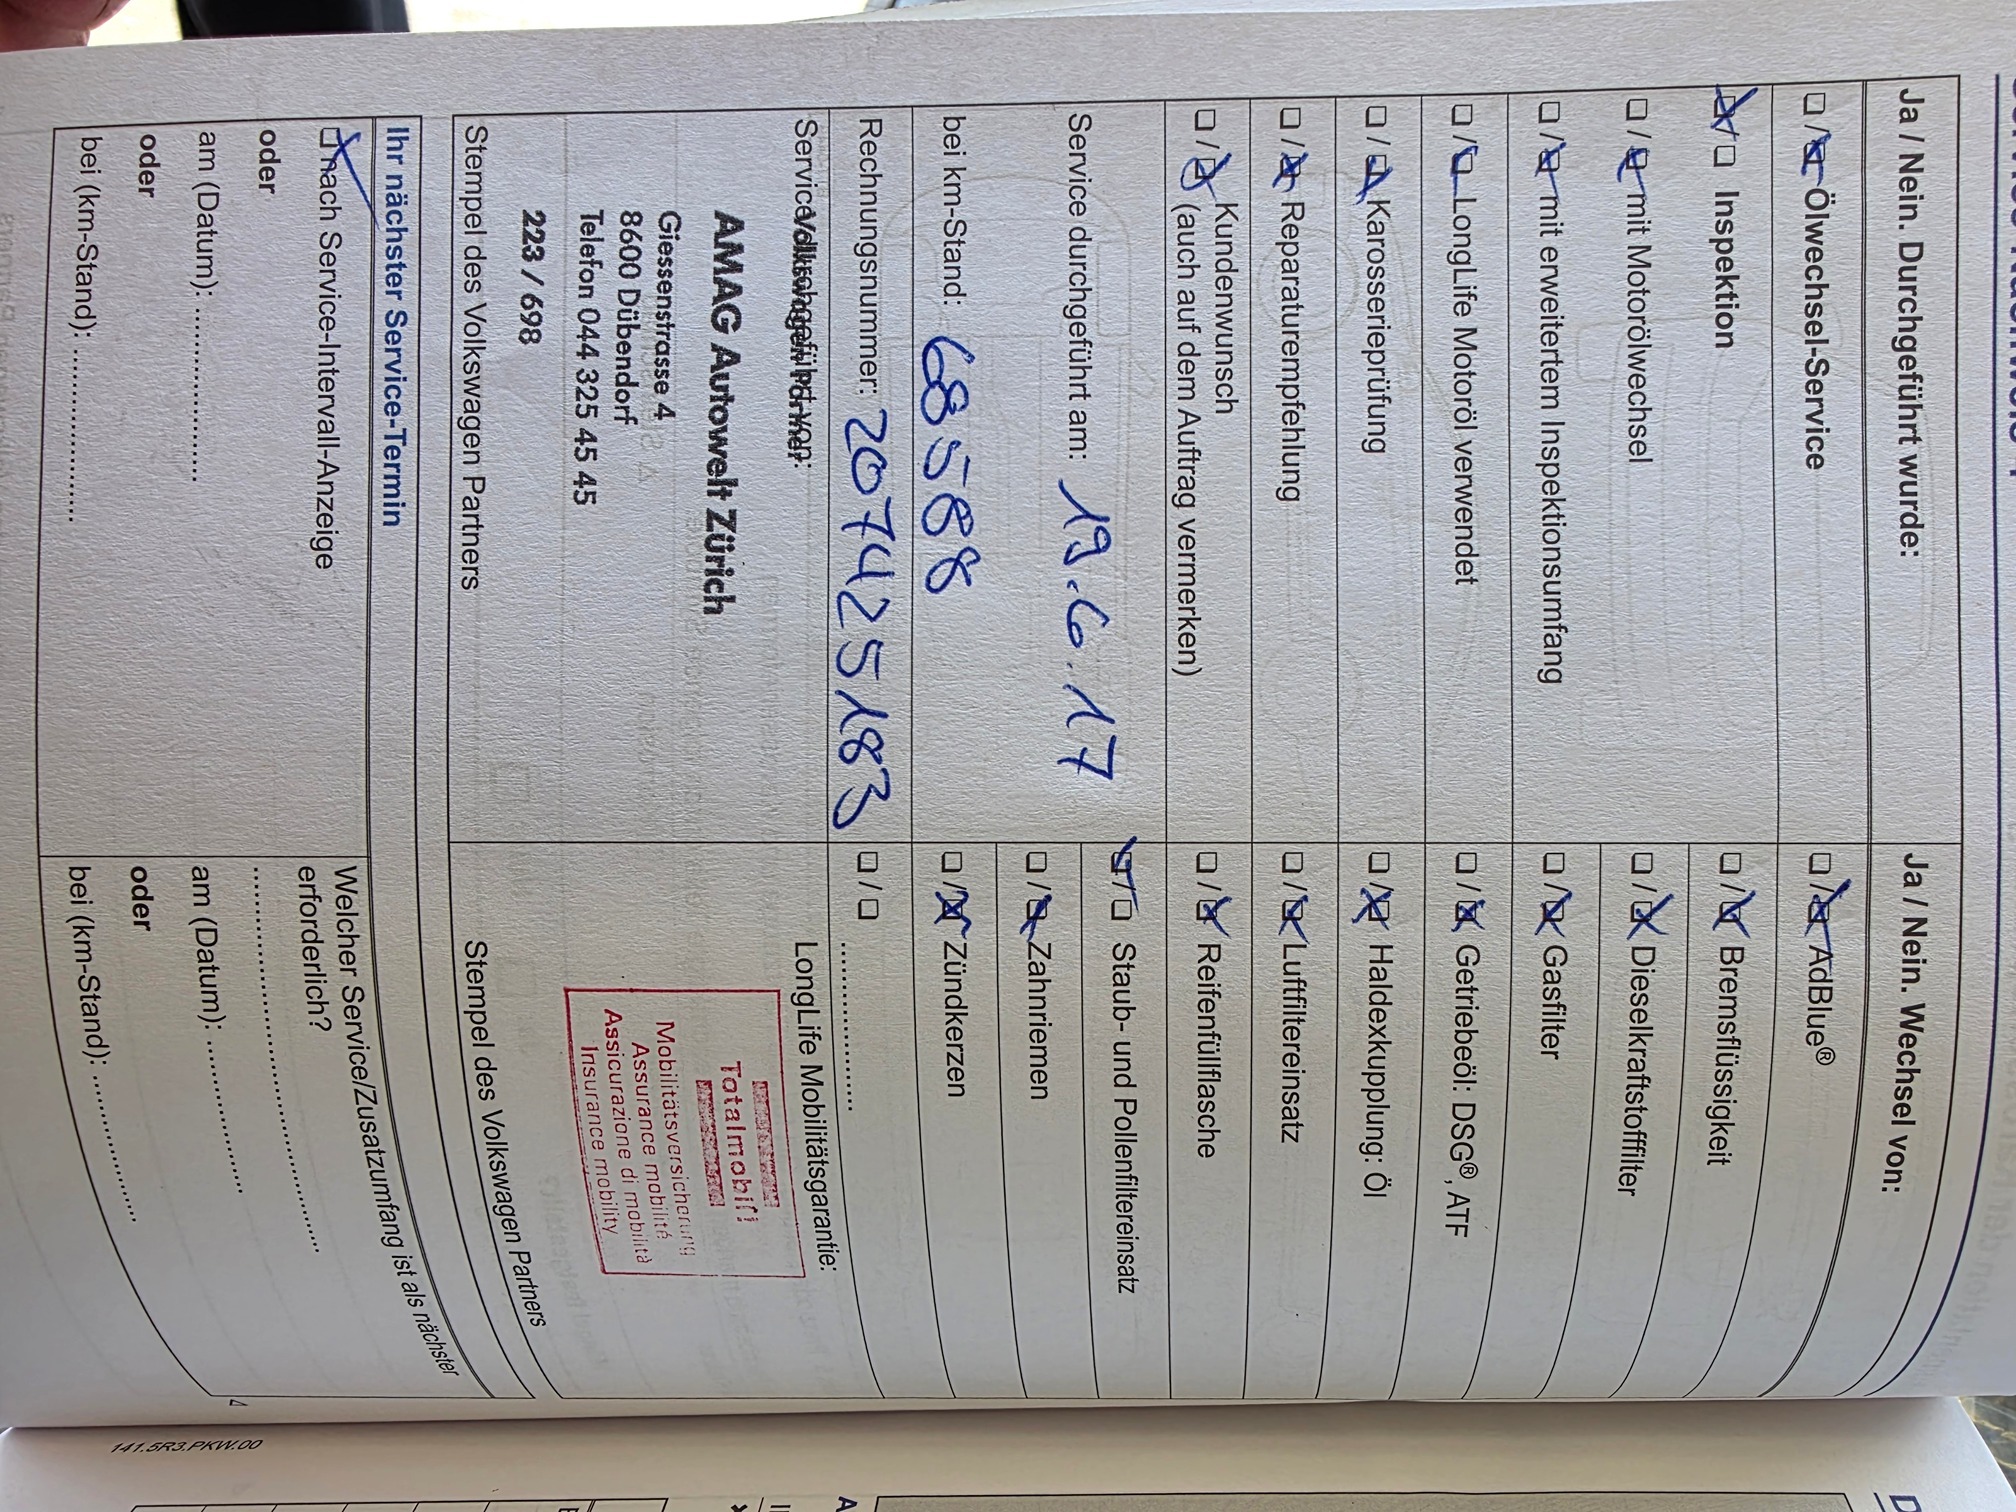 Ja / Nein. Durchgeführt wurde:
☐ / ☒ Ölwechsel-Service
☒ / ☐ Inspektion
☐ / ☒ mit Motorölwechsel
☐ / ☒ mit erweitertem Inspektionsumfang
☐ / ☒ LongLife Motoröl verwendet
☐ / ☒ Karosserieprüfung
☐ / ☒ Reparaturempfehlung
☐ / ☒ Kundenwunsch
(auch auf dem Auftrag vermerken)
Service durchgeführt am: 19.6.17
bei km-Stand: 68588
Rechnungsnummer: 207425183
Service durchgeführt von:
Volkswagen Partner
AMAG Autowelt Zürich
Giessenstrasse 4
8600 Dübendorf
Telefon 044 325 45 45
223 / 698
Stempel des Volkswagen Partners
Ja / Nein. Wechsel von:
☐ / ☒ AdBlue®
☐ / ☒ Bremsflüssigkeit
☐ / ☒ Dieselkraftstofffilter
☐ / ☒ Gasfilter
☐ / ☒ Getriebeöl: DSG®, ATF
☐ / ☒ Haldexkupplung: Öl
☐ / ☒ Luftfiltereinsatz
☐ / ☒ Reifenfüllflasche
☒ / ☐ Staub- und Pollenfiltereinsatz
☐ / ☒ Zahnriemen
☐ / ☒ Zündkerzen
☐ / ☐ ....................
LongLife Mobilitätsgarantie:
Totalmobil!
Mobilitätsversicherung
Assurance mobilité
Assicurazione di mobilità
Insurance mobility
Stempel des Volkswagen Partners
Ihr nächster Service-Termin
☒ nach Service-Intervall-Anzeige
oder
am (Datum): ....................
oder
bei (km-Stand): ....................
Welcher Service/Zusatzumfang ist als nächster
erforderlich?
........................................
am (Datum): ....................
oder
bei (km-Stand): ....................
141.5R3.PKW.00